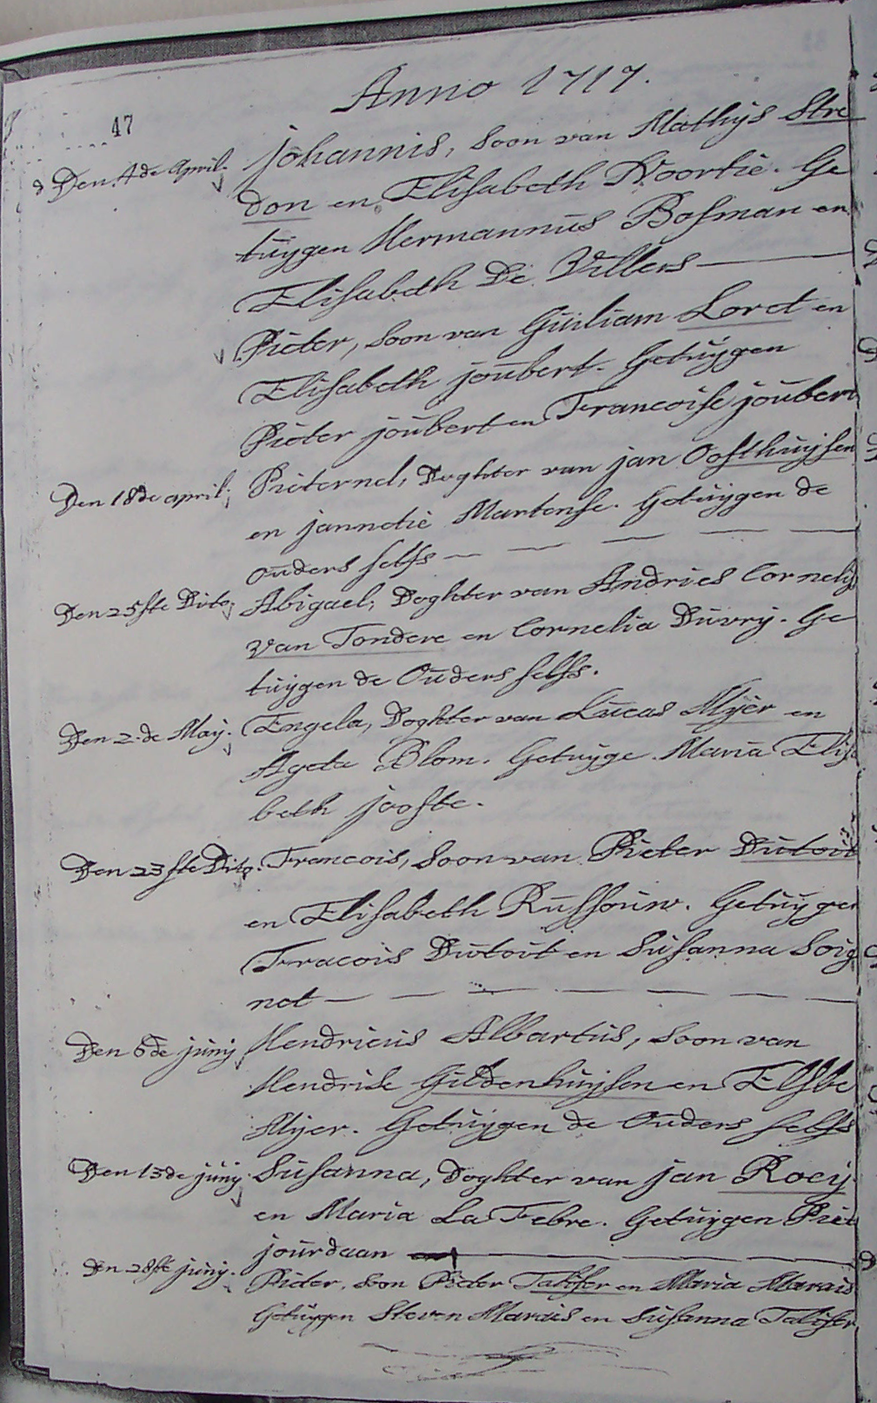 Anno 1717.
47
Den 4de April. Johannis, Soon van Mathijs Stre
don en Elisabeth Noortie. Ge
tuÿgen Hermannus Bosman en
Elisabeth De Villers
Pieter, Soon van Guiliam Loret en
Elisabeth joubert. Getuÿgen
Pieter joubert en Francoise joubert
Den 18de april. Pieternel, Doghter van jan Oosthuijsen
en jannetie Martense. Getuÿgen de
Ouders selfs
Den 25ste Dito. Abigael, Doghter van Andries Cornelis
Van Tondere en Cornelia Duvrij. Ge
tuÿgen de Ouders selfs.
Den 2de Maij. Engela, Doghter van Lucas Mijer en
Ageta Blom. Getuÿge Maria Elisa
beth jooste.
Den 23ste Dito. Francois, Soon van Pieter Dutoit
en Elisabeth Russouw. Getuÿgen
Fracois Dutoit en Susanna Soig
not
Den 6de junij Hendricus Albartus, Soon van
Hendrik Gildenhuijsen en Elsbe
Mijer. Getuÿgen de Ouders selfs
Den 13de junij. Susanna, Doghter van jan Roeij
en Maria La Febre. Getuÿgen Piet
jourdaan
Den 28ste junij. Pieter, Son Pieter en Maria Marais
Getuÿgen Steven Marais en Susanna